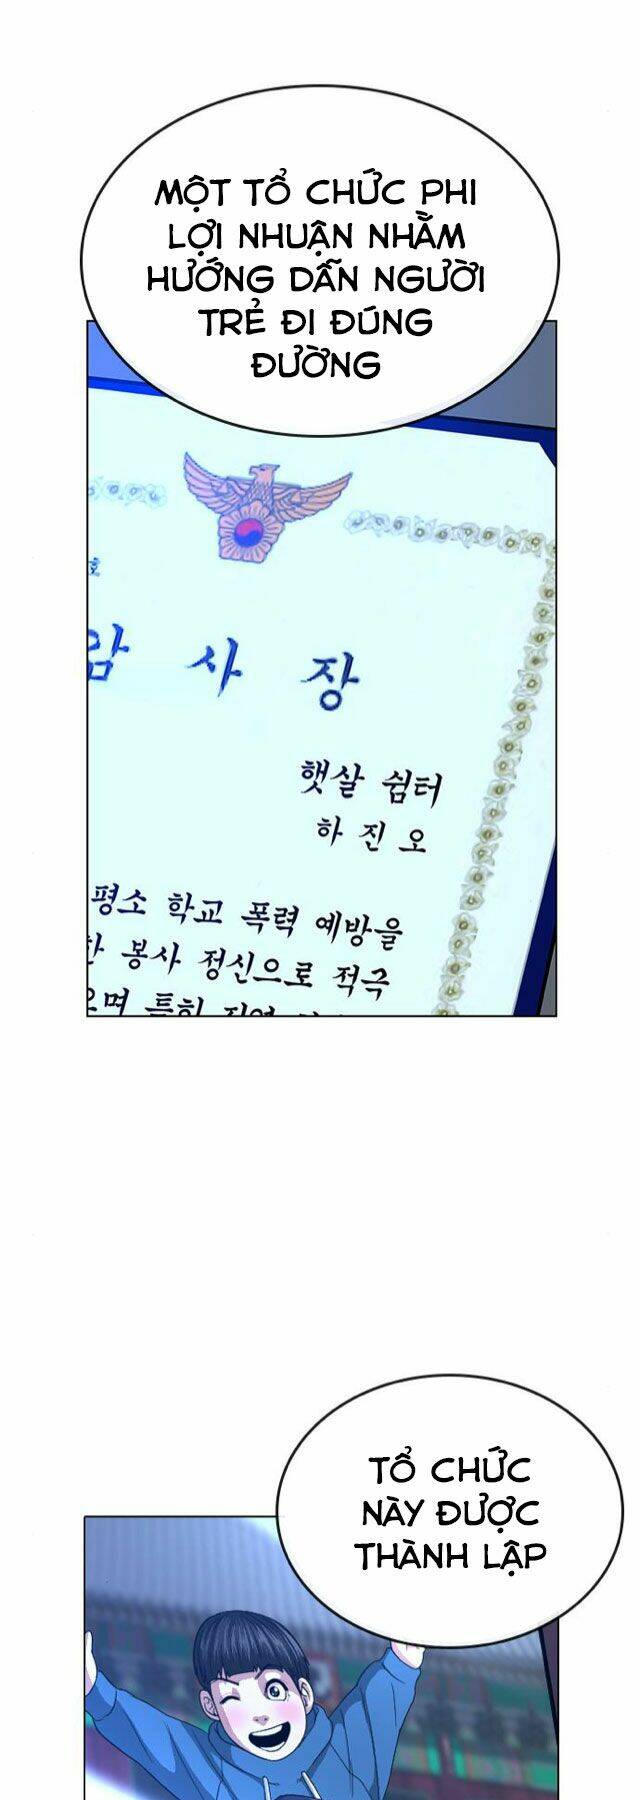 MỘT TỔ CHỨC PHI
LỢI NHUẬN NHẰM
HƯỚNG DẪN NGƯỜI
TRẺ ĐI ĐÚNG
ĐƯỜNG
호
사 장
햇살 쉼터
하 진 오
평소 학교 폭력 예방을
한 봉사 정신으로 적극
으며 특히 지역
TỔ CHỨC
NÀY ĐƯỢC
THÀNH LẬP